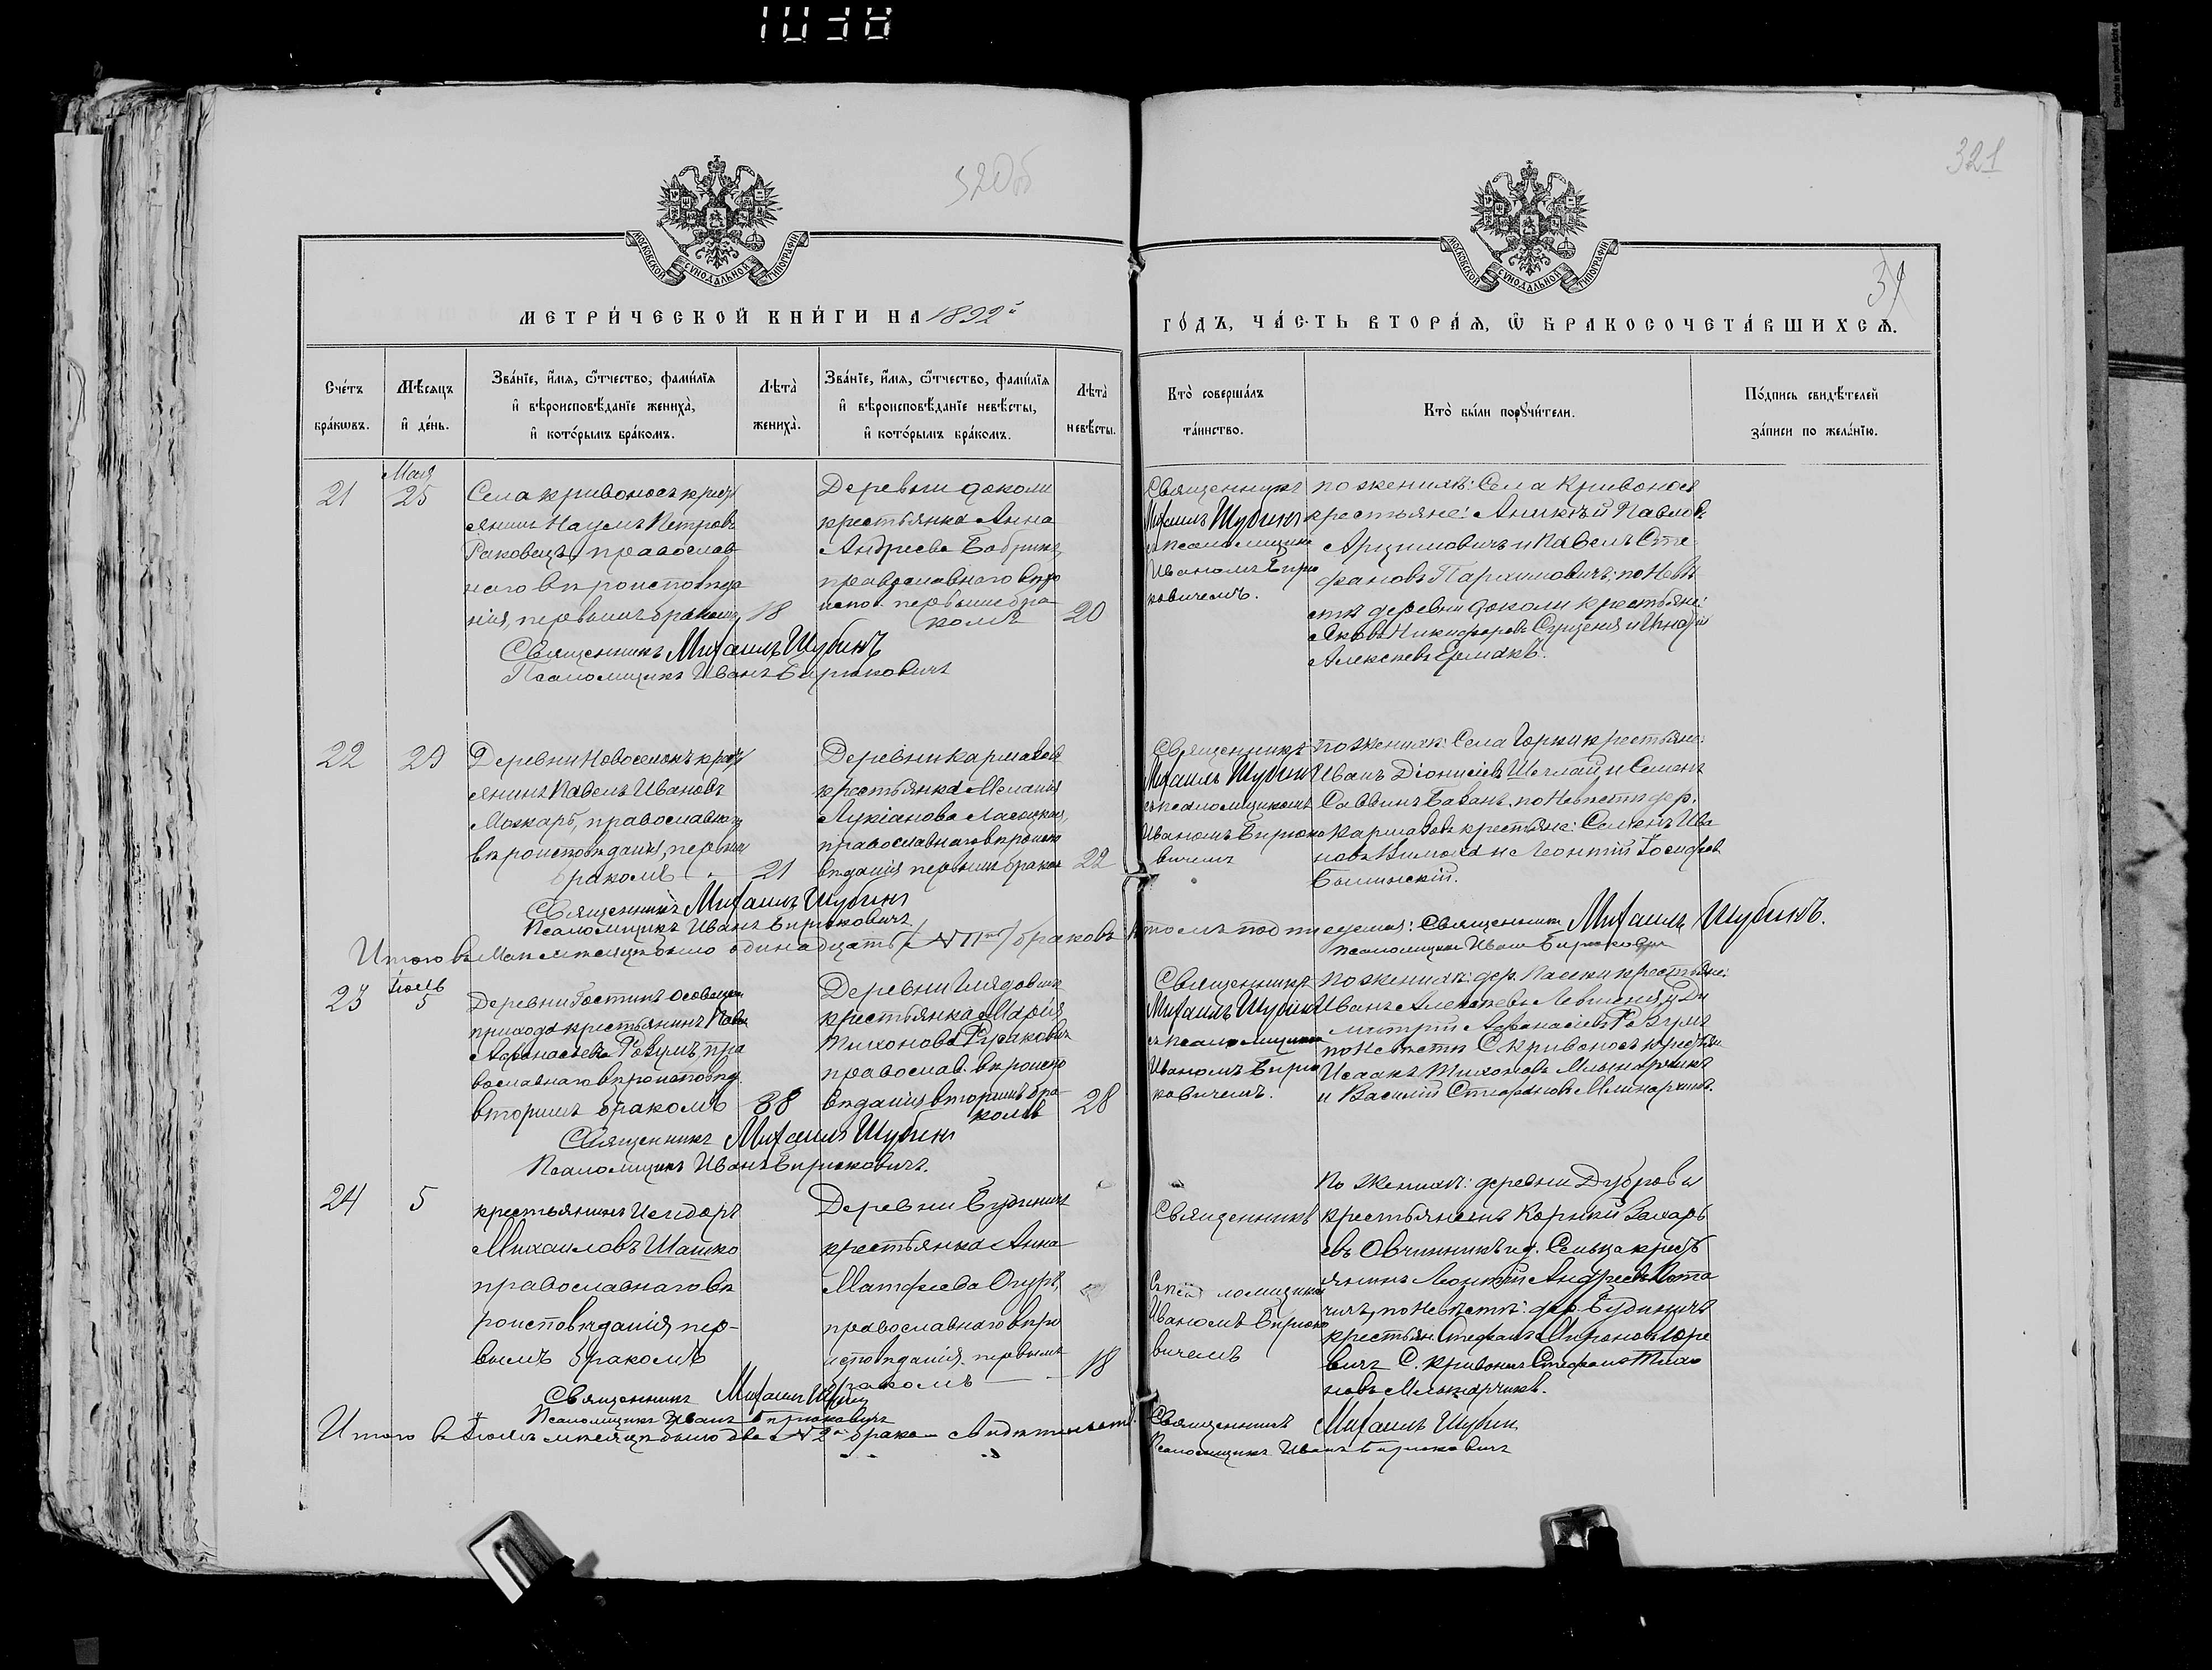 320об
321
МОСКОВСКОЙ СѴНОДАЛЬНОЙ ТИПОГРАФІИ
МОСКОВСКОЙ СѴНОДАЛЬНОЙ ТИПОГРАФІИ
МЕТРИ́ЧЕСКОЙ КНИ́ГИ НА 1892й
ГО́ДЪ, ЧА́СТЬ ВТОРА́Я, Ѿ БРАКОСОЧЕТА́ВШИХСЯ.
Сче́тъ бра́кѡвъ.
Мѣ́сяцъ и҆ де́нь.
Зва́нїе, и҆́мя, ѻ҆́тчество, фами́лїя
и҆ вѣроисповѣ́данїе жениха̀,
и҆ кото́рымъ бра́комъ.
Лѣта̀ жениха̀.
Зва́нїе, и҆́мя, ѻ҆́тчество, фами́лїя
и҆ вѣроисповѣ́данїе невѣ́сты,
и҆ кото́рымъ бра́комъ.
Лѣта̀ невѣ́сты.
Кто̀ соверша́лъ та́инство.
Кто̀ бы́ли пору́чи́тели.
По́дпись свидѣ́телей
за́писи по жела́нїю.
21
Мая
25
Села Кривоносъ крест
янинъ Наумъ Петровъ
Раковецъ, православ
наго вѣроисповѣда
нія, первымъ бракомъ
18
Деревни Доколи
крестьянка Анна
Андреева Бобрикъ,
православнаго вѣро
испов. первымъ бра
комъ
20
Священникъ
Михаилъ Шубинъ
съ псаломщикомъ
Иваномъ Бирю
ковичемъ.
По женихѣ: Села Кривоносъ
крестьяне: Павловъ
Арцимовичъ и Павелъ Сте
фановъ Пархимовичъ; по невѣ
стѣ деревни Доколи крестьяне:
Яковъ Никифоровъ
Алексѣевъ Ермакъ.
Священникъ Михаилъ Шубинъ
Псаломщикъ Иванъ Бирюковичъ
22
29
Деревни Новоселокъ крест
янинъ Павелъ Ивановъ
Можаръ, православнаго
вѣроисповѣданія, первымъ
бракомъ
21
Деревни Кармазов
крестьянка Меланія
Лукіанова Ласоцкая,
православнаго вѣроиспо
вѣданія первымъ бракомъ
22
Священникъ
Михаилъ Шубинъ
съ псаломщикомъ
Иваномъ Бирюко
вичемъ
По женихѣ: Села Горки крестьяне:
Иванъ Діонисіевъ и Семенъ
Саввинъ Бабакъ, по невѣстѣ дер.
Кармазовъ крестьяне: Семенъ Ива
новъ и Леонтій Іосифовъ
Священникъ Михаилъ Шубинъ
Псаломщикъ Иванъ Бирюковичъ
Итого въ Маѣ мѣсяцѣ было одинадцать (№ 11) браковъ
Священникъ Михаилъ Шубинъ.
Псаломщикъ Иванъ Бирюковичъ
23
Іюль
5
Деревни Гостинъ
прихода крестьянинъ
Афанасьевъ Розумъ, пра
вославнаго вѣроисповѣд.
вторымъ бракомъ
38
Деревни
крестьянка Марія
Тихонова Русаковичъ
православ. вѣроиспо
вѣданія вторымъ бра
комъ
28
Священникъ
Михаилъ Шубинъ
съ псаломщикомъ
Иваномъ Бирю
ковичемъ.
По женихѣ: дер. крестьяне:
Иванъ Алексѣевъ и Ди
митрій Афанасіевъ Розумъ
по невѣстѣ С. Кривоносъ крестьян
Исаакъ Тихоновъ Млынарчикъ
и Василій Стефановъ Млинарчикъ.
Священникъ Михаилъ Шубинъ
Псаломщикъ Иванъ Бирюковичъ.
24
5
Крестьянинъ Исидоръ
Михаиловъ Шашко
православнаго вѣ
роисповѣданія, пер-
вымъ бракомъ
Деревни Будинич
крестьянка Анна
Матфеева Огуръ,
православнаго вѣро
исповѣданія, первымъ
бракомъ
18
Священникъ
Съ псаломщикомъ
Иваномъ Бирюко
вичемъ
По женихѣ: деревни Дубровы
крестьянинъ Корнилій Захарь
евъ Овчинникъ и д. Сельца крест
янинъ Леонтій Андреевъ Пота
чиль, по невѣстѣ: дер. Будинич
крестьян. Стефанъ Мироновъ Юре
вичъ С. Кривоносъ Стефанъ Тихо
новъ Млынарчикъ.
Священникъ Михаилъ Шубинъ
Псаломщикъ Иванъ Бирюковичъ
Итого въ Іюлѣ мѣсяцѣ было два № 2 брака
Священникъ Михаилъ Шубин
Псаломщикъ Иванъ Бирюковичъ